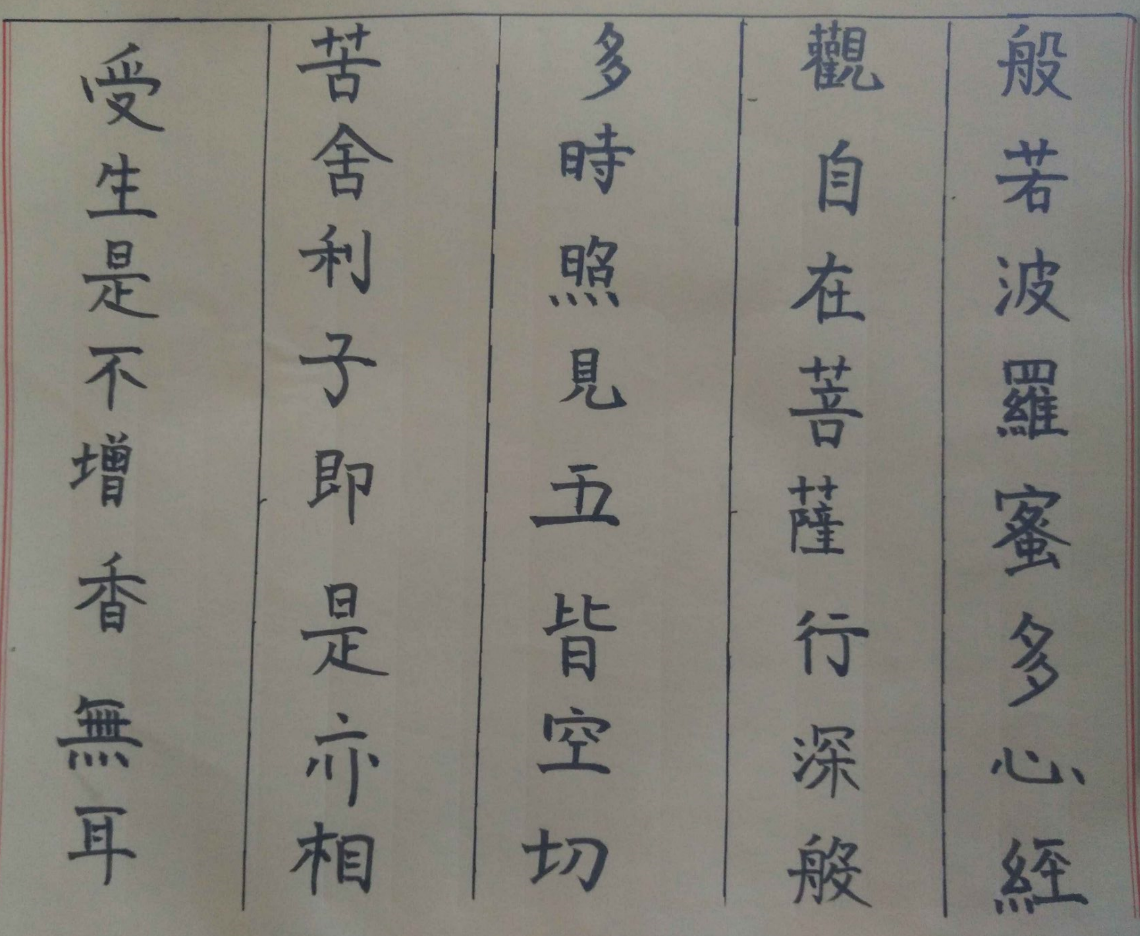 般若波羅蜜多心經
觀自在菩薩行深般
多時照見五皆空切
苦舍利子即是亦相
受生是不增香無耳